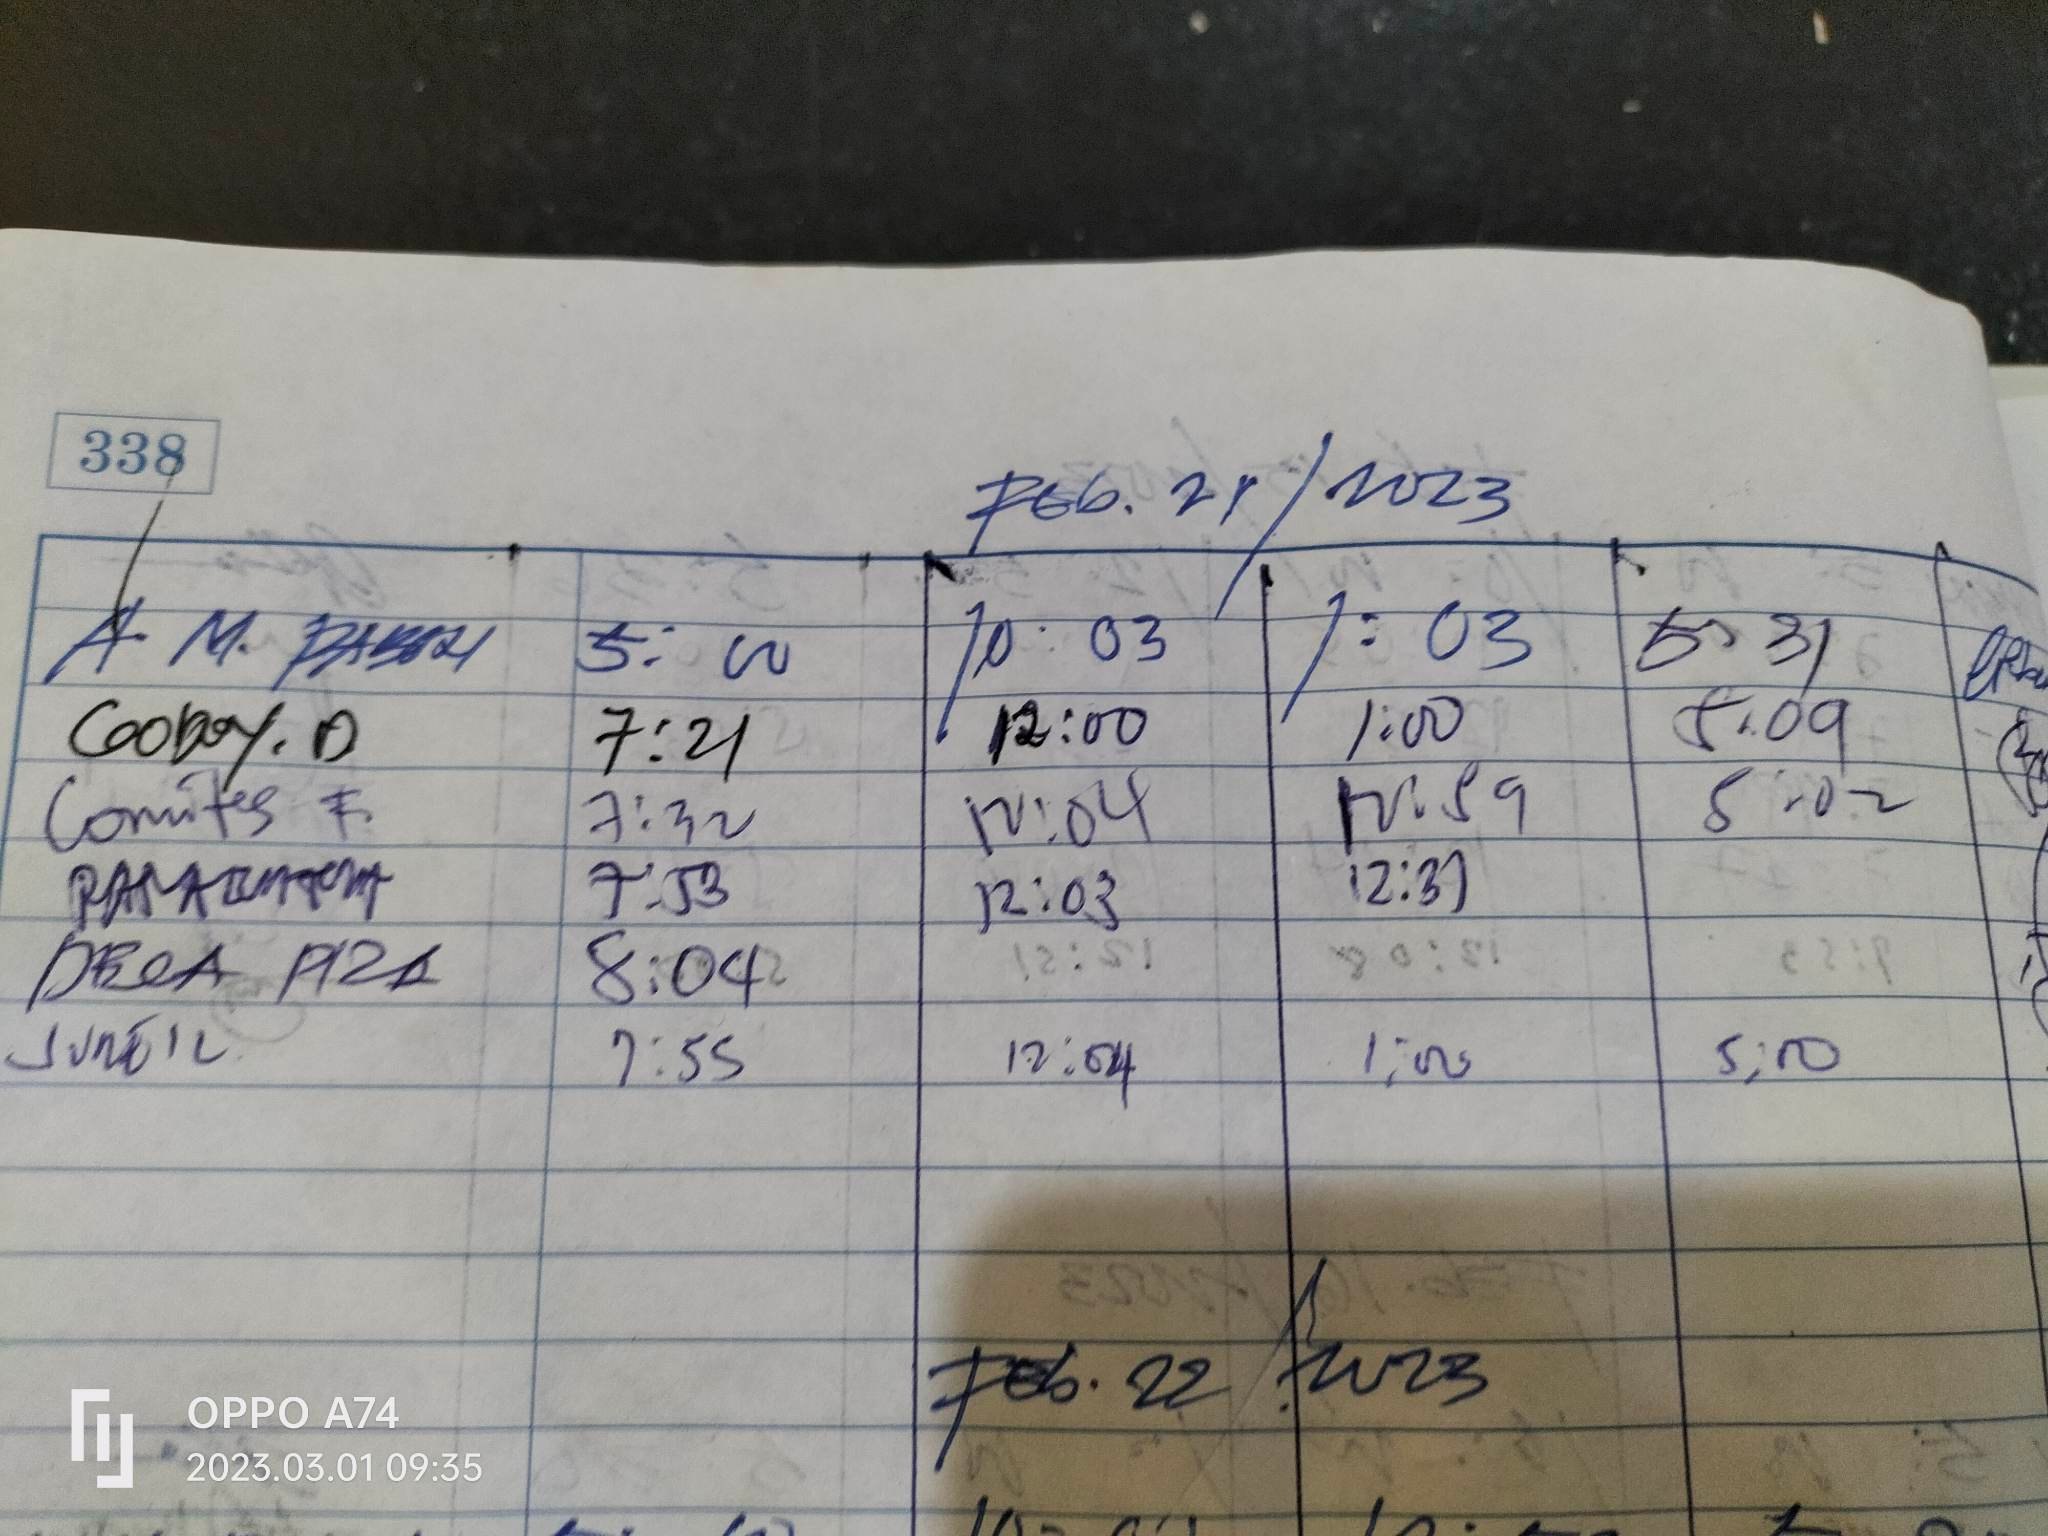 338
Feb. 21/2023
A. M. 5:00 10:03 1:03 5:31
Cooboy. D 7:21 12:00 1:00 5:09
Comites F. 7:32 12:04 12:59 5:02
7:53 12:03 12:31
DECA PIZA 8:04
JUNEIL 7:55 12:04 1:00 5:00
Feb. 22/2023
OPPO A74
2023.03.01 09:35